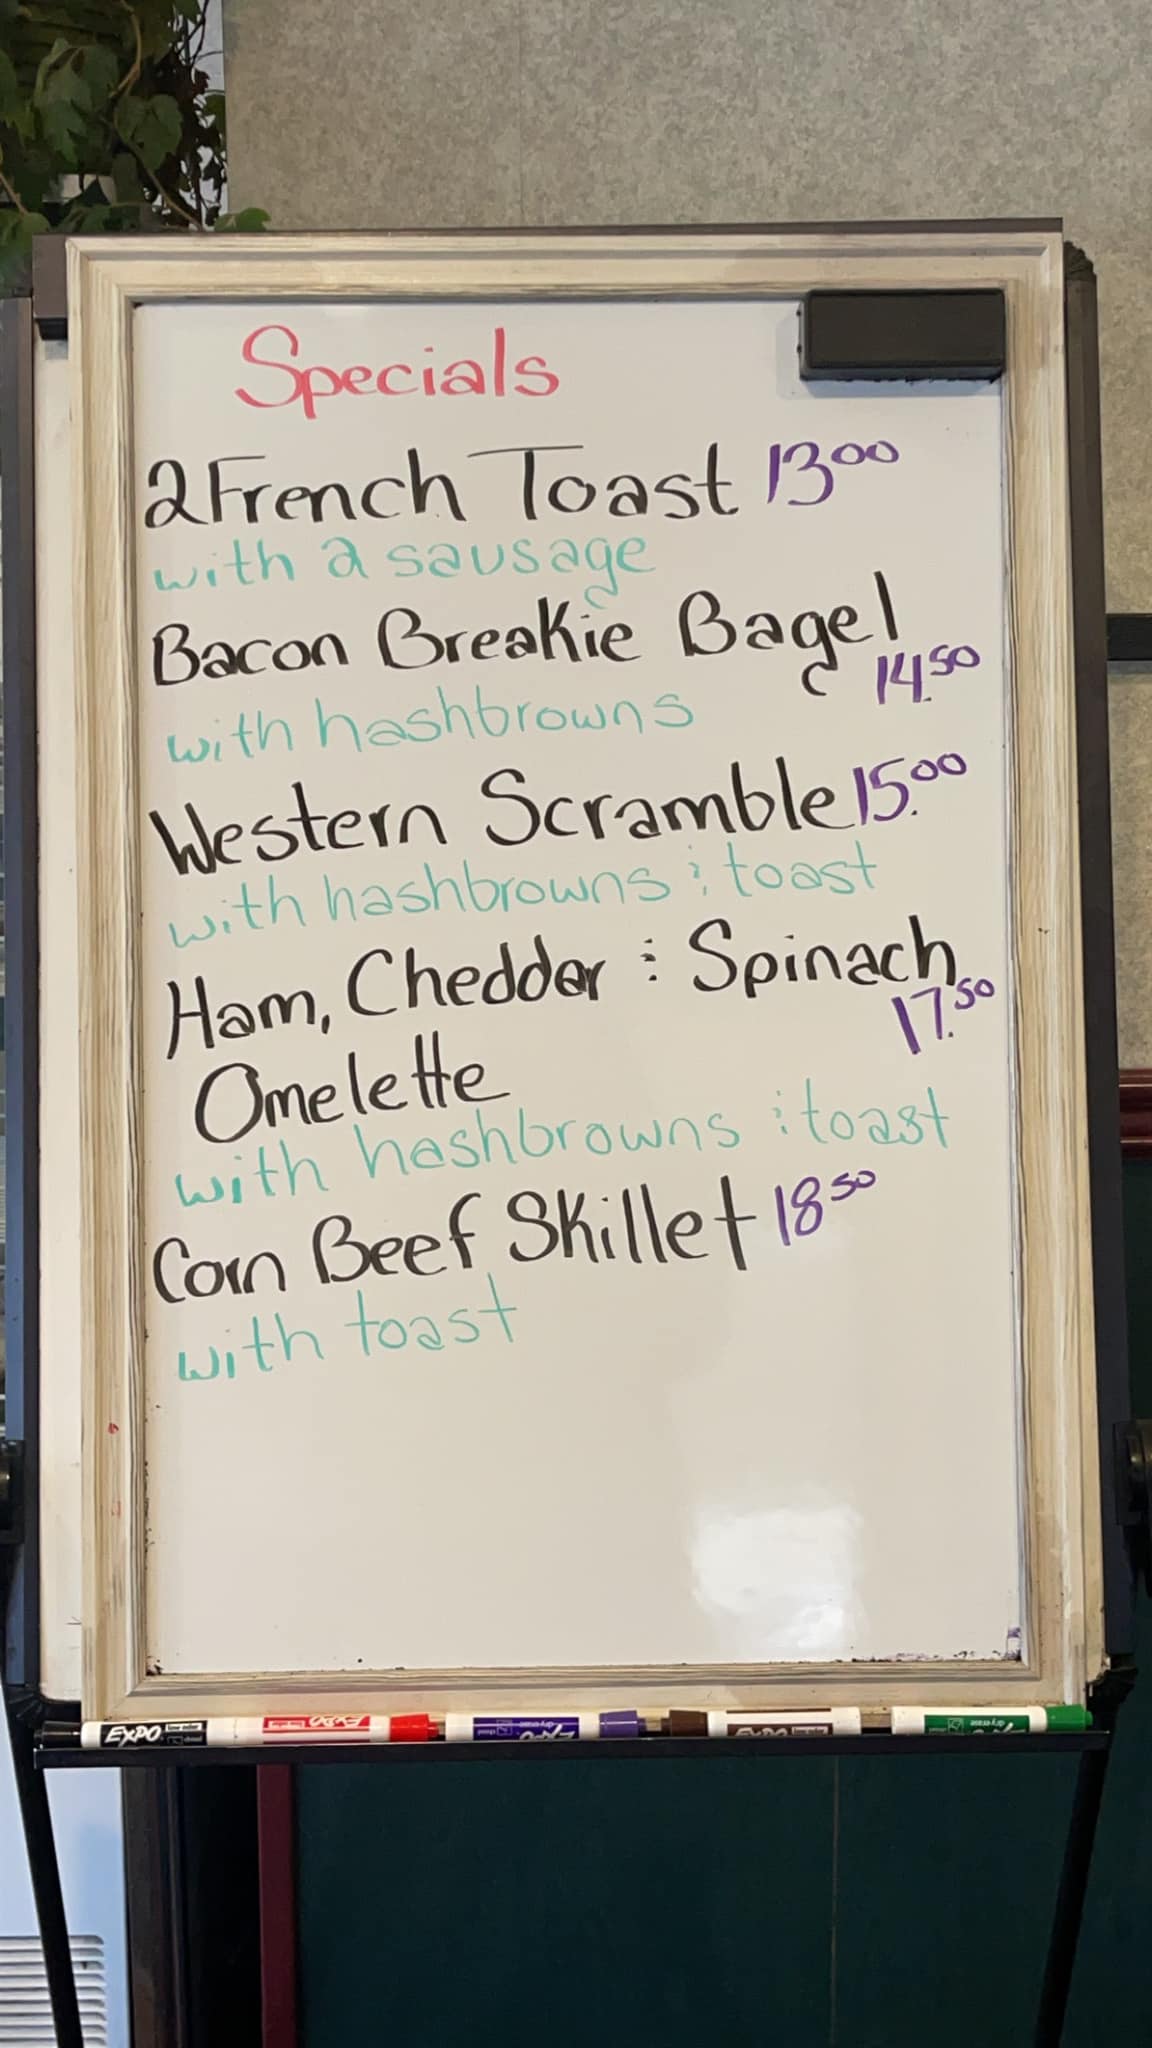 Specials
2 French Toast 13.00
with a sausage
Bacon Breakie Bagel
14.50
with hashbrowns
Western Scramble 15.00
with hashbrowns & toast
Ham, Chedder & Spinach
17.50
Omelette
with hashbrowns & toast
Corn Beef Skillet 18.50
with toast
EXPO EXPO EXPO EXPO